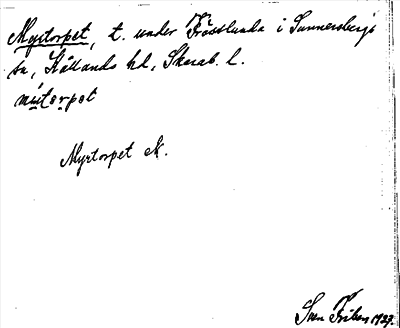 Myrtorpet, t. under Fröslunda i Sunnersbergs
sn, Kållands hd, Skarab. l.
mútorpet
Myrtorpet K.
Sven Friberg 1937.